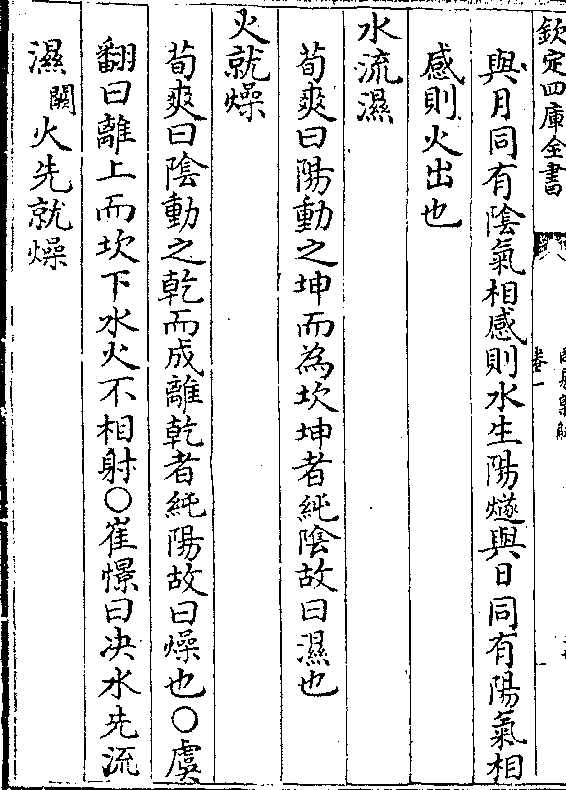 欽定四庫全書
卷一
與月同有陰氣相感則水生陽燧與日同有陽氣相
感則火出也
水流濕
荀爽曰陽動之坤而為坎坤者純陰故曰濕也
火就燥
荀爽曰陰動之乾而成離乾者純陽故曰燥也○虞
翻曰離上而坎下水火不相射○崔憬曰決水先流
濕闕火先就燥